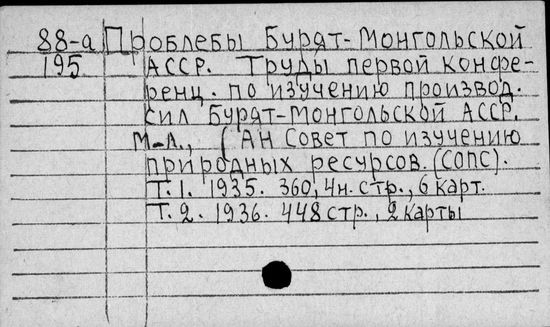 88-а Проблебы Бурят-Монгольской
195 АССР. Труды первой конфе-
ренц. по изучению производ.
сил Бурят-Монгольской АССР.
М-Л., (АН Совет по изучению
природных ресурсов. (СОПС).
Т. 1. 1935. 360, 4н. стр., 6 карт.
Т. 2. 1936. 448 стр., 2 карты